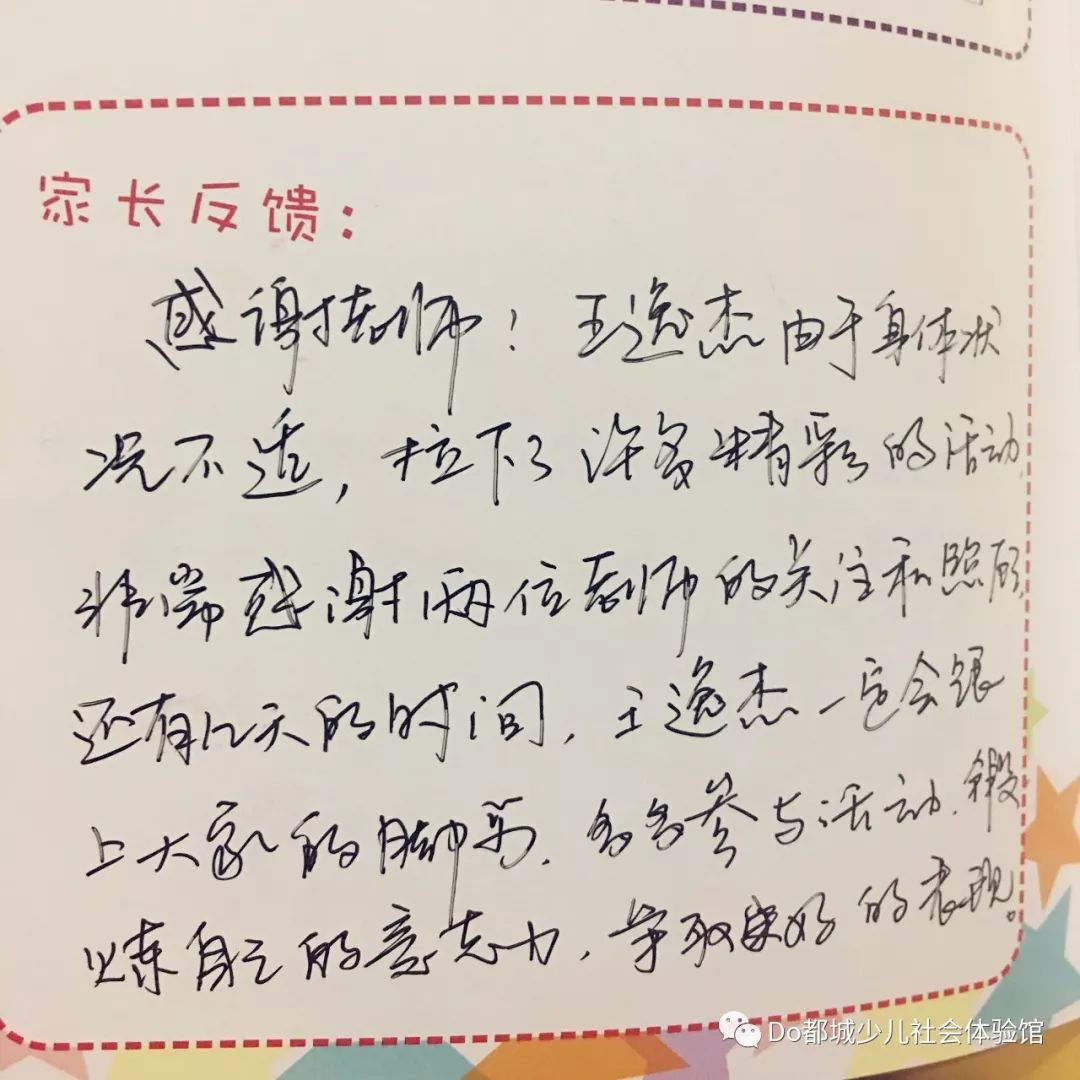 家长反馈:
感谢老师！王逸杰由于身体状
况不适，拉下了许多精彩的活动，
非常感谢两位老师的关注和照顾，
还有几天的时间，王逸杰一定会跟
上大家的脚步，多多参与活动，锻
炼自己的意志力，争取更好的表现。
Do都城少儿社会体验馆